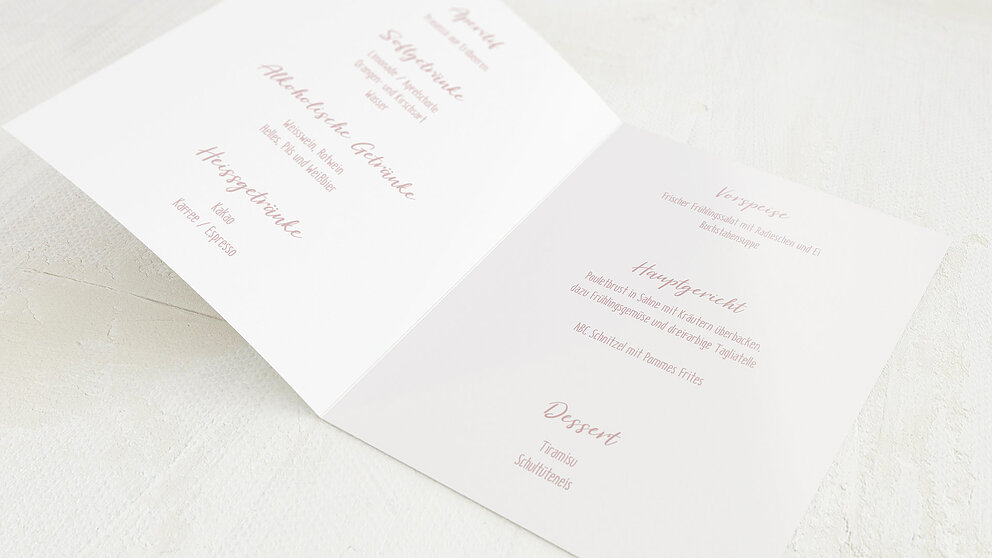 Aperitif
Prosecco mit Erdbeeren
Softgetränke
Limonade / Apfelschorle
Orangen- und Kirschsaft
Wasser
Alkoholische Getränke
Weisswein, Rotwein
Helles, Pils und Weißbier
Heissgetränke
Kakao
Kaffee / Espresso
Vorspeise
Frischer Frühlingssalat mit Radieschen und Ei
Buchstabensuppe
Hauptgericht
Pouletbrust in Sahne mit Kräutern überbacken,
dazu Frühlingsgemüse und dreifarbige Tagliatelle
ABC Schnitzel mit Pommes Frites
Dessert
Tiramisu
Schultüteneis